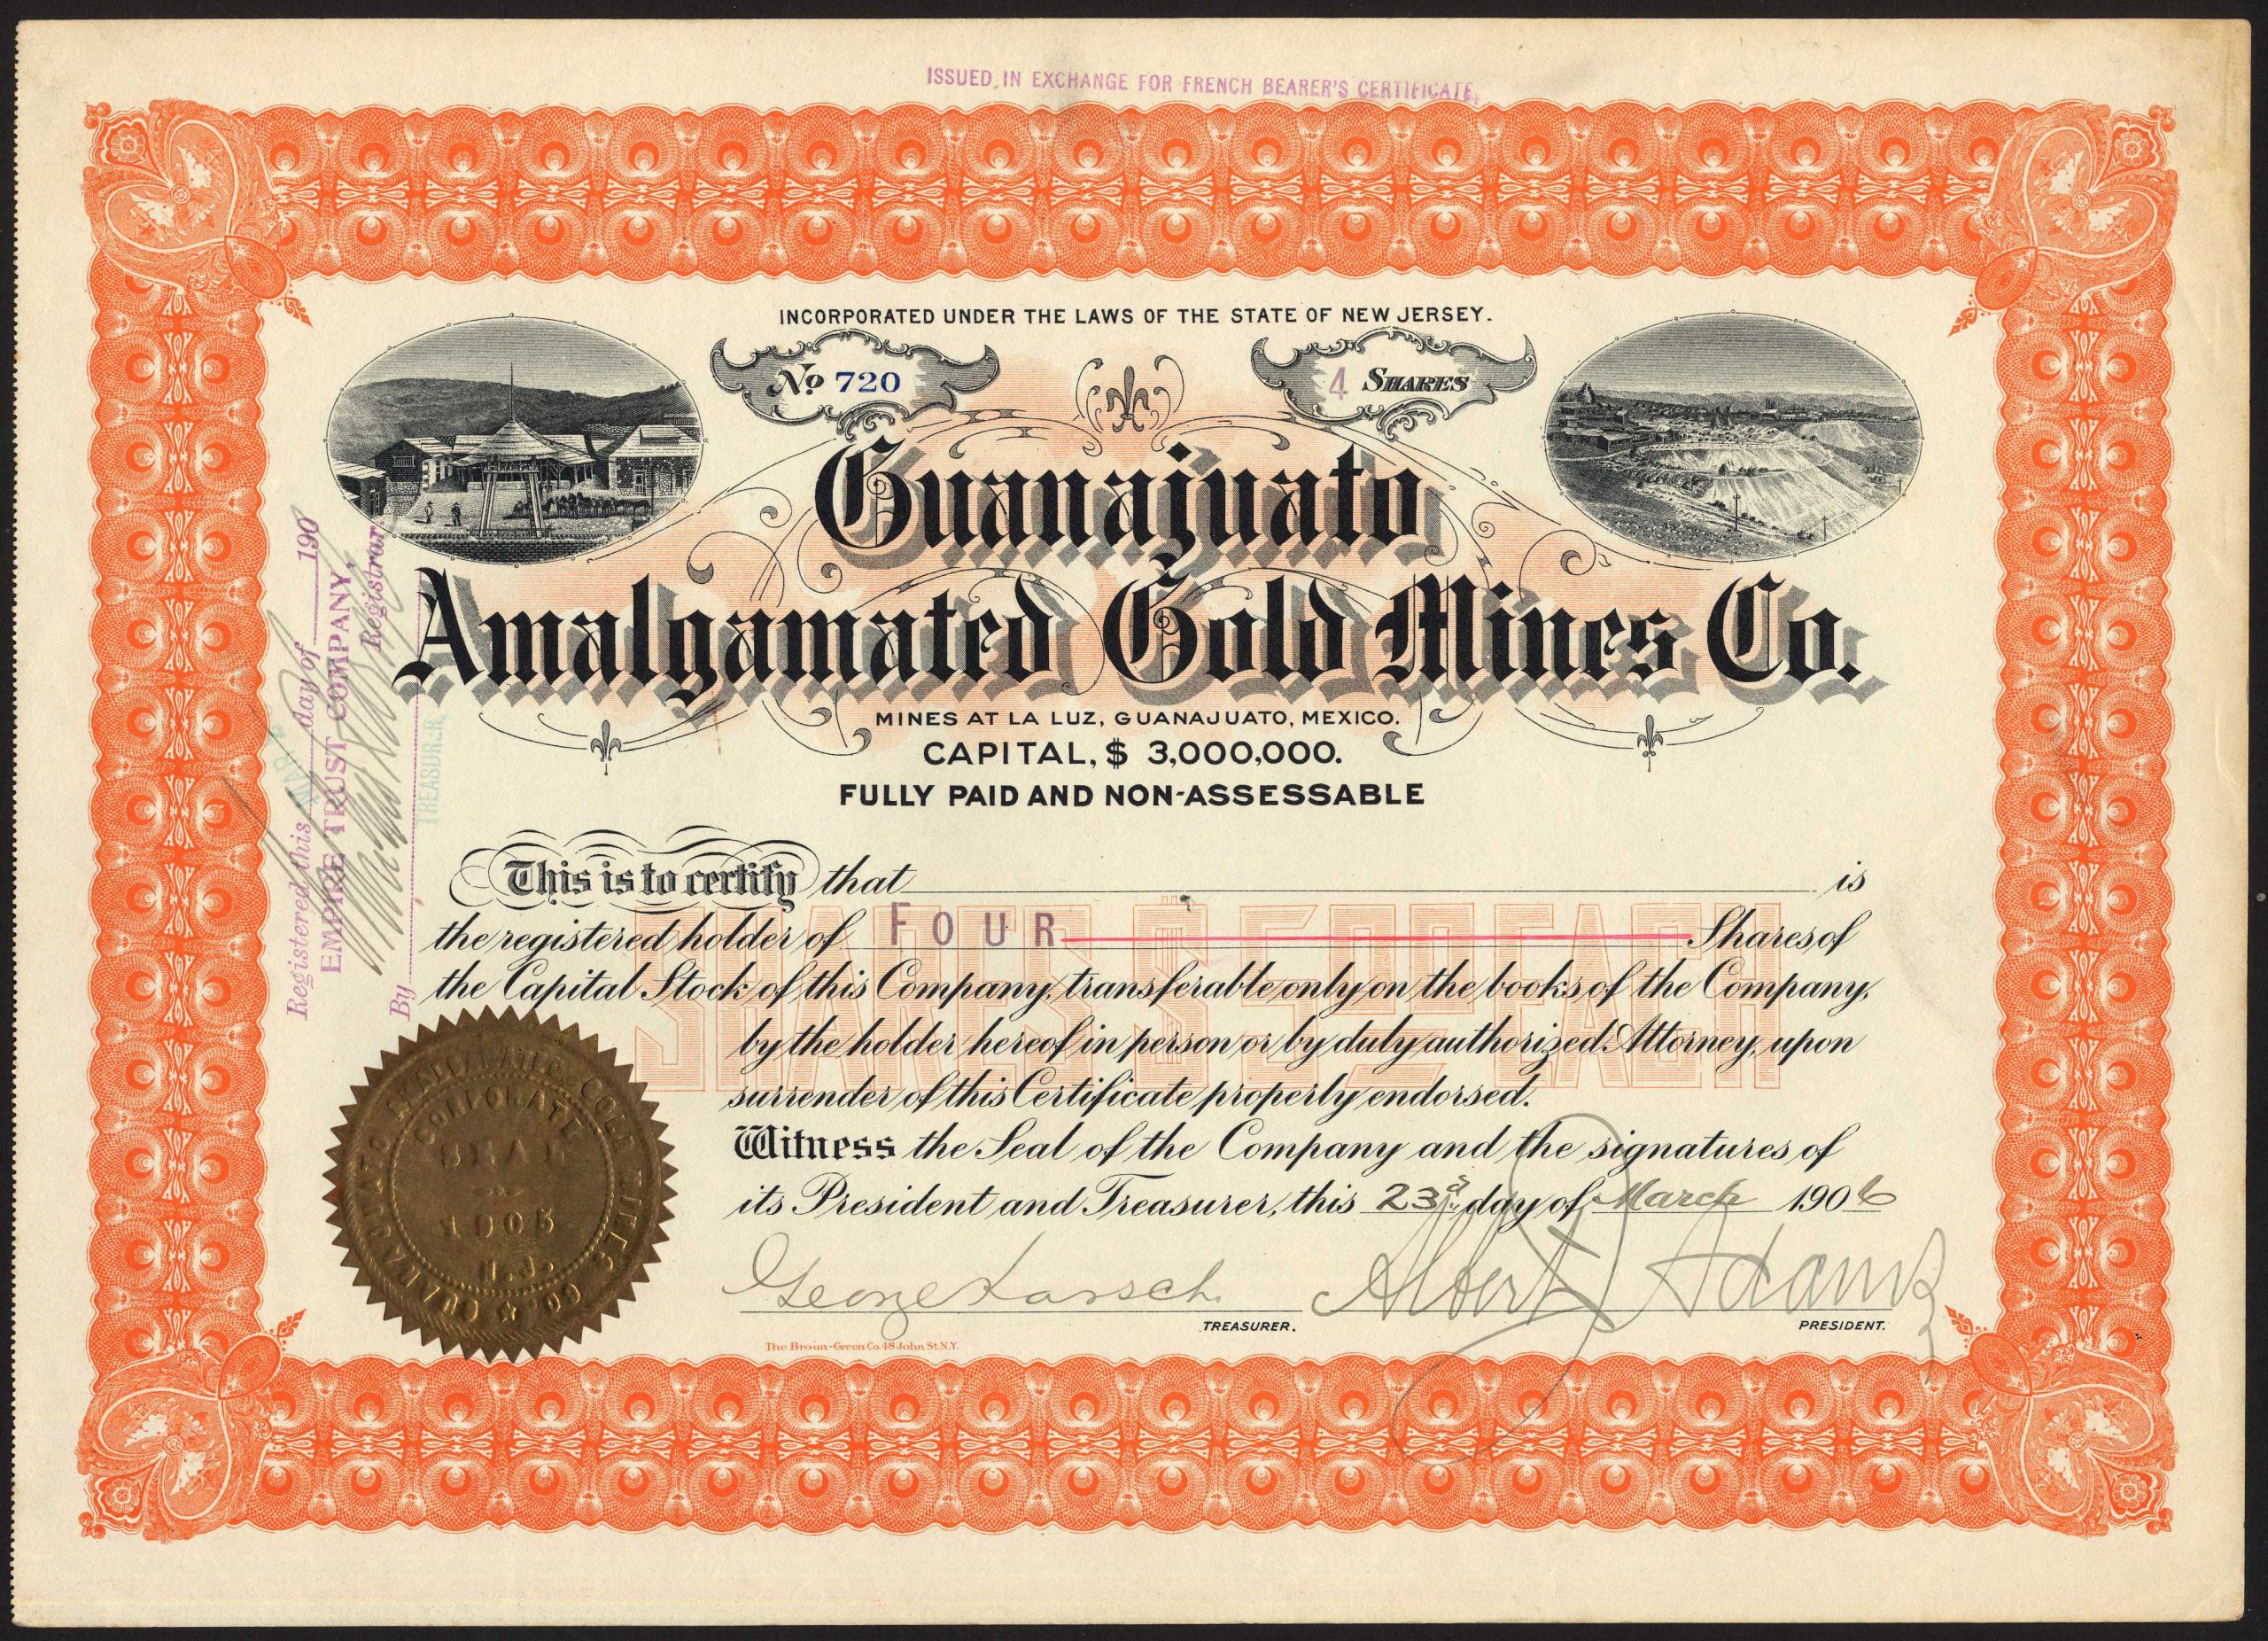 ISSUED IN EXCHANGE FOR FRENCH BEARER'S CERTIFICATE.
INCORPORATED UNDER THE LAWS OF THE STATE OF NEW JERSEY.
No 720
4 SHARES
Guanajuato
Amalgamated Gold Mines Co.
MINES AT LA LUZ, GUANAJUATO, MEXICO.
CAPITAL, $ 3,000,000.
FULLY PAID AND NON-ASSESSABLE
Registered this day of 190
EMPIRE TRUST COMPANY,
Registrar.
By
TREASURER
This is to certify that is
the registered holder of FOUR Shares of
the Capital Stock of this Company, transferable only on the books of the Company,
by the holder hereof in person or by duly authorized Attorney, upon
surrender of this Certificate properly endorsed.
SHARES $5.00 EACH
Witness the Seal of the Company and the signatures of
its President and Treasurer, this 23d day of March 1906
George Karsch
TREASURER.
Albert J Adams
PRESIDENT.
GUANAJUATO AMALGAMATED GOLD MINES CO.
CORPORATE
SEAL
1905
N.J.
The Broun-Green Co. 48 John St. N.Y.